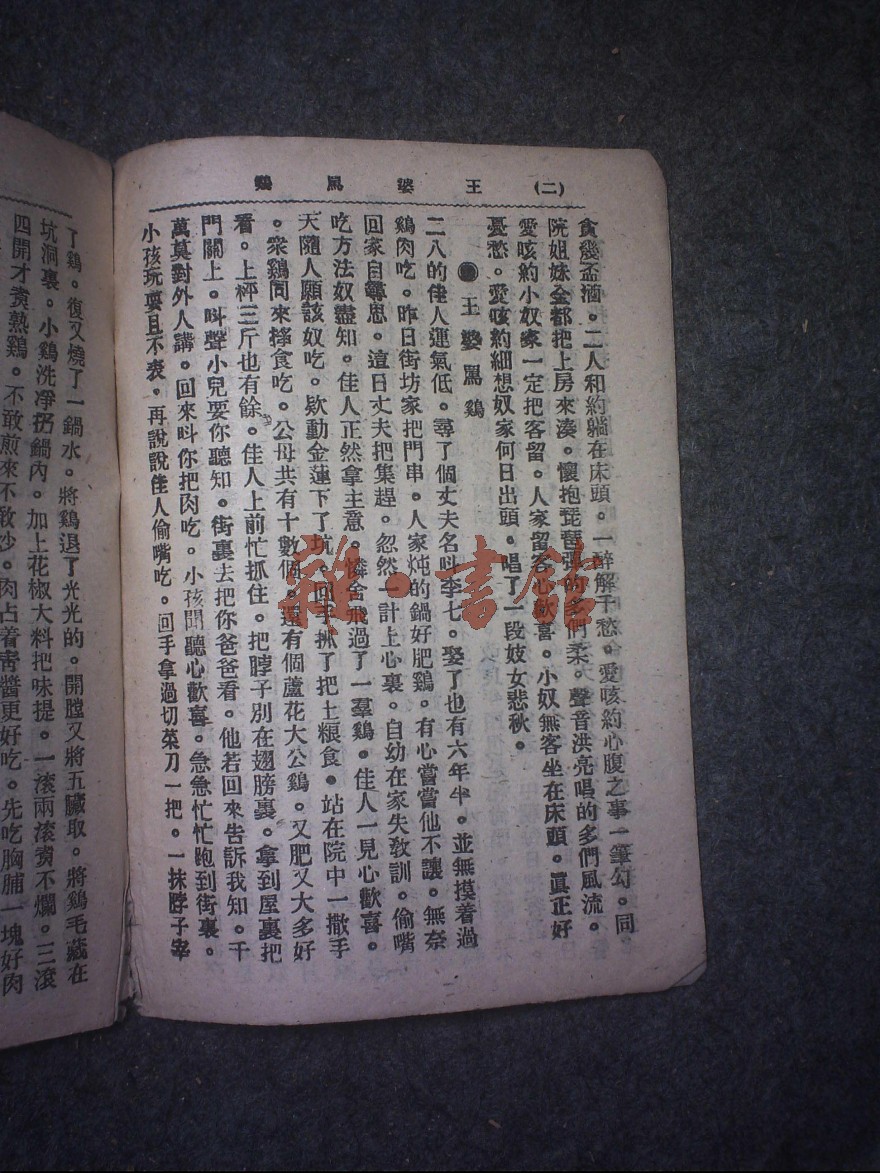 (二) 王婆罵鷄
貪幾盃酒。二人和約躺在床頭。一醉解千愁。愛咳約心腹之事一筆勾。同
院姐妹全都把上房來湊。懷抱琵琶彈的多們柔。聲音洪亮唱的多們風流。
愛咳約小奴家一定把客留。人家留客心歡喜。小奴無客坐在床頭。眞正好
憂愁。愛咳約細想奴家何日出頭。唱了一段妓女悲秋。
●王婆罵鷄
二八的佳人運氣低。尋了個丈夫名呌李七。娶了也有六年半。並無摸着過
鷄肉吃。昨日街坊家把門串。人家炖的鍋好肥鷄。有心嘗嘗他不讓。無奈
回家自尋思。這日丈夫把集趕。忽然一計上心裏。自幼在家失敎訓。偷嘴
吃方法奴盡知。佳人正然拿主意。憐舍飛過了一羣鷄。佳人一見心歡喜。
天隨人願該奴吃。欵動金蓮下了坑。回手抓了把土粮食。站在院中一撒手
。衆鷄同來擇食吃。公母共有十數個。還有個蘆花大公鷄。又肥又大多好
看。上枰三斤也有餘。佳人上前忙抓住。把脖子別在翅膀裏。拿到屋裏把
門關上。呌聲小兒要你聽知。街裏去把你爸爸看。他若回來告訴我知。千
萬莫對外人講。回來呌你把肉吃。小孩聞聽心歡喜。急急忙忙跑到街裏。
小孩玩耍且不表。再說說佳人偷嘴吃。回手拿過切菜刀一把。一抹脖子宰
了鷄。復又燒了一鍋水。將鷄退了光光的。開膛又將五臟取。將鷄毛藏在
坑洞裏。小鷄洗凈扔鍋內。加上花椒大料把味提。一滾兩滾煑不爛。三滾
四開才煑熟鷄。不敢煎來不敢炒。肉占着靑醬更好吃。先吃胸脯一塊好肉
雜·書館